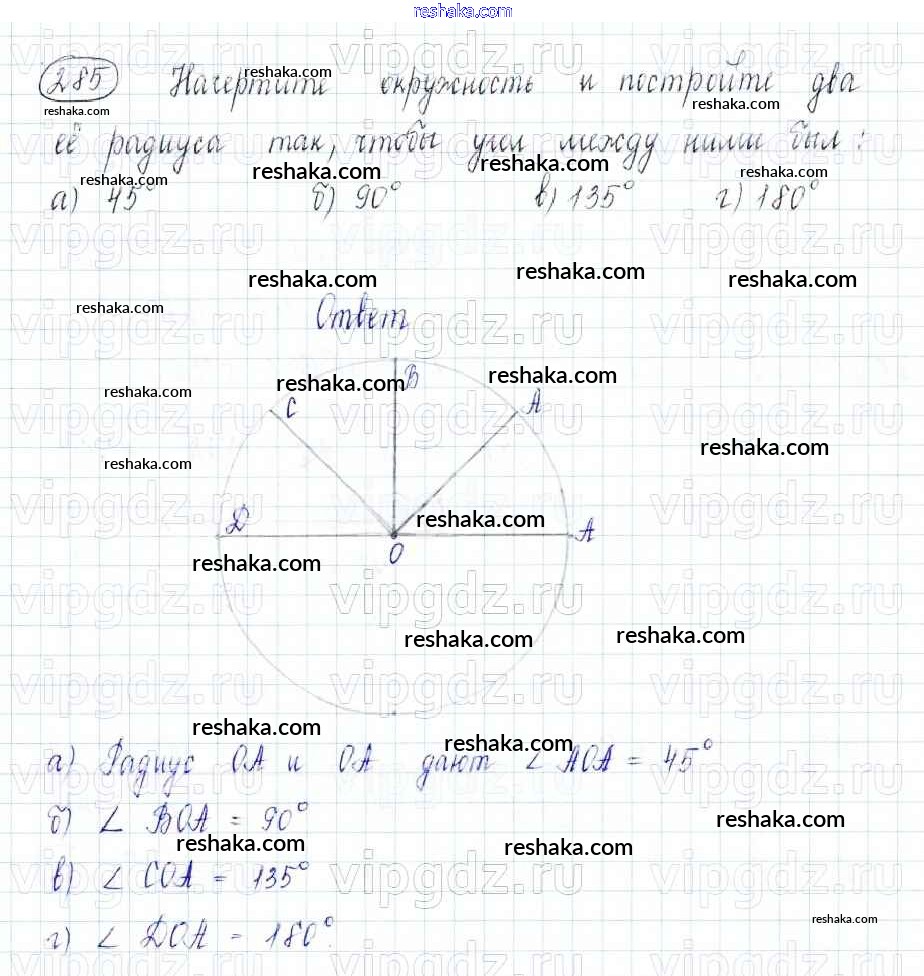 reshaka.com
285 Начертите окружность и постройте два
её радиуса так, чтобы угол между ними был:
а) 45° б) 90° в) 135° г) 180°
Ответ
B
C
A
Д
A
O
а) Радиус OA и OA дают ∠ AOA = 45°
б) ∠ BOA = 90°
в) ∠ COA = 135°
г) ∠ ДOA = 180°.
vipgdz.ru
reshaka.com